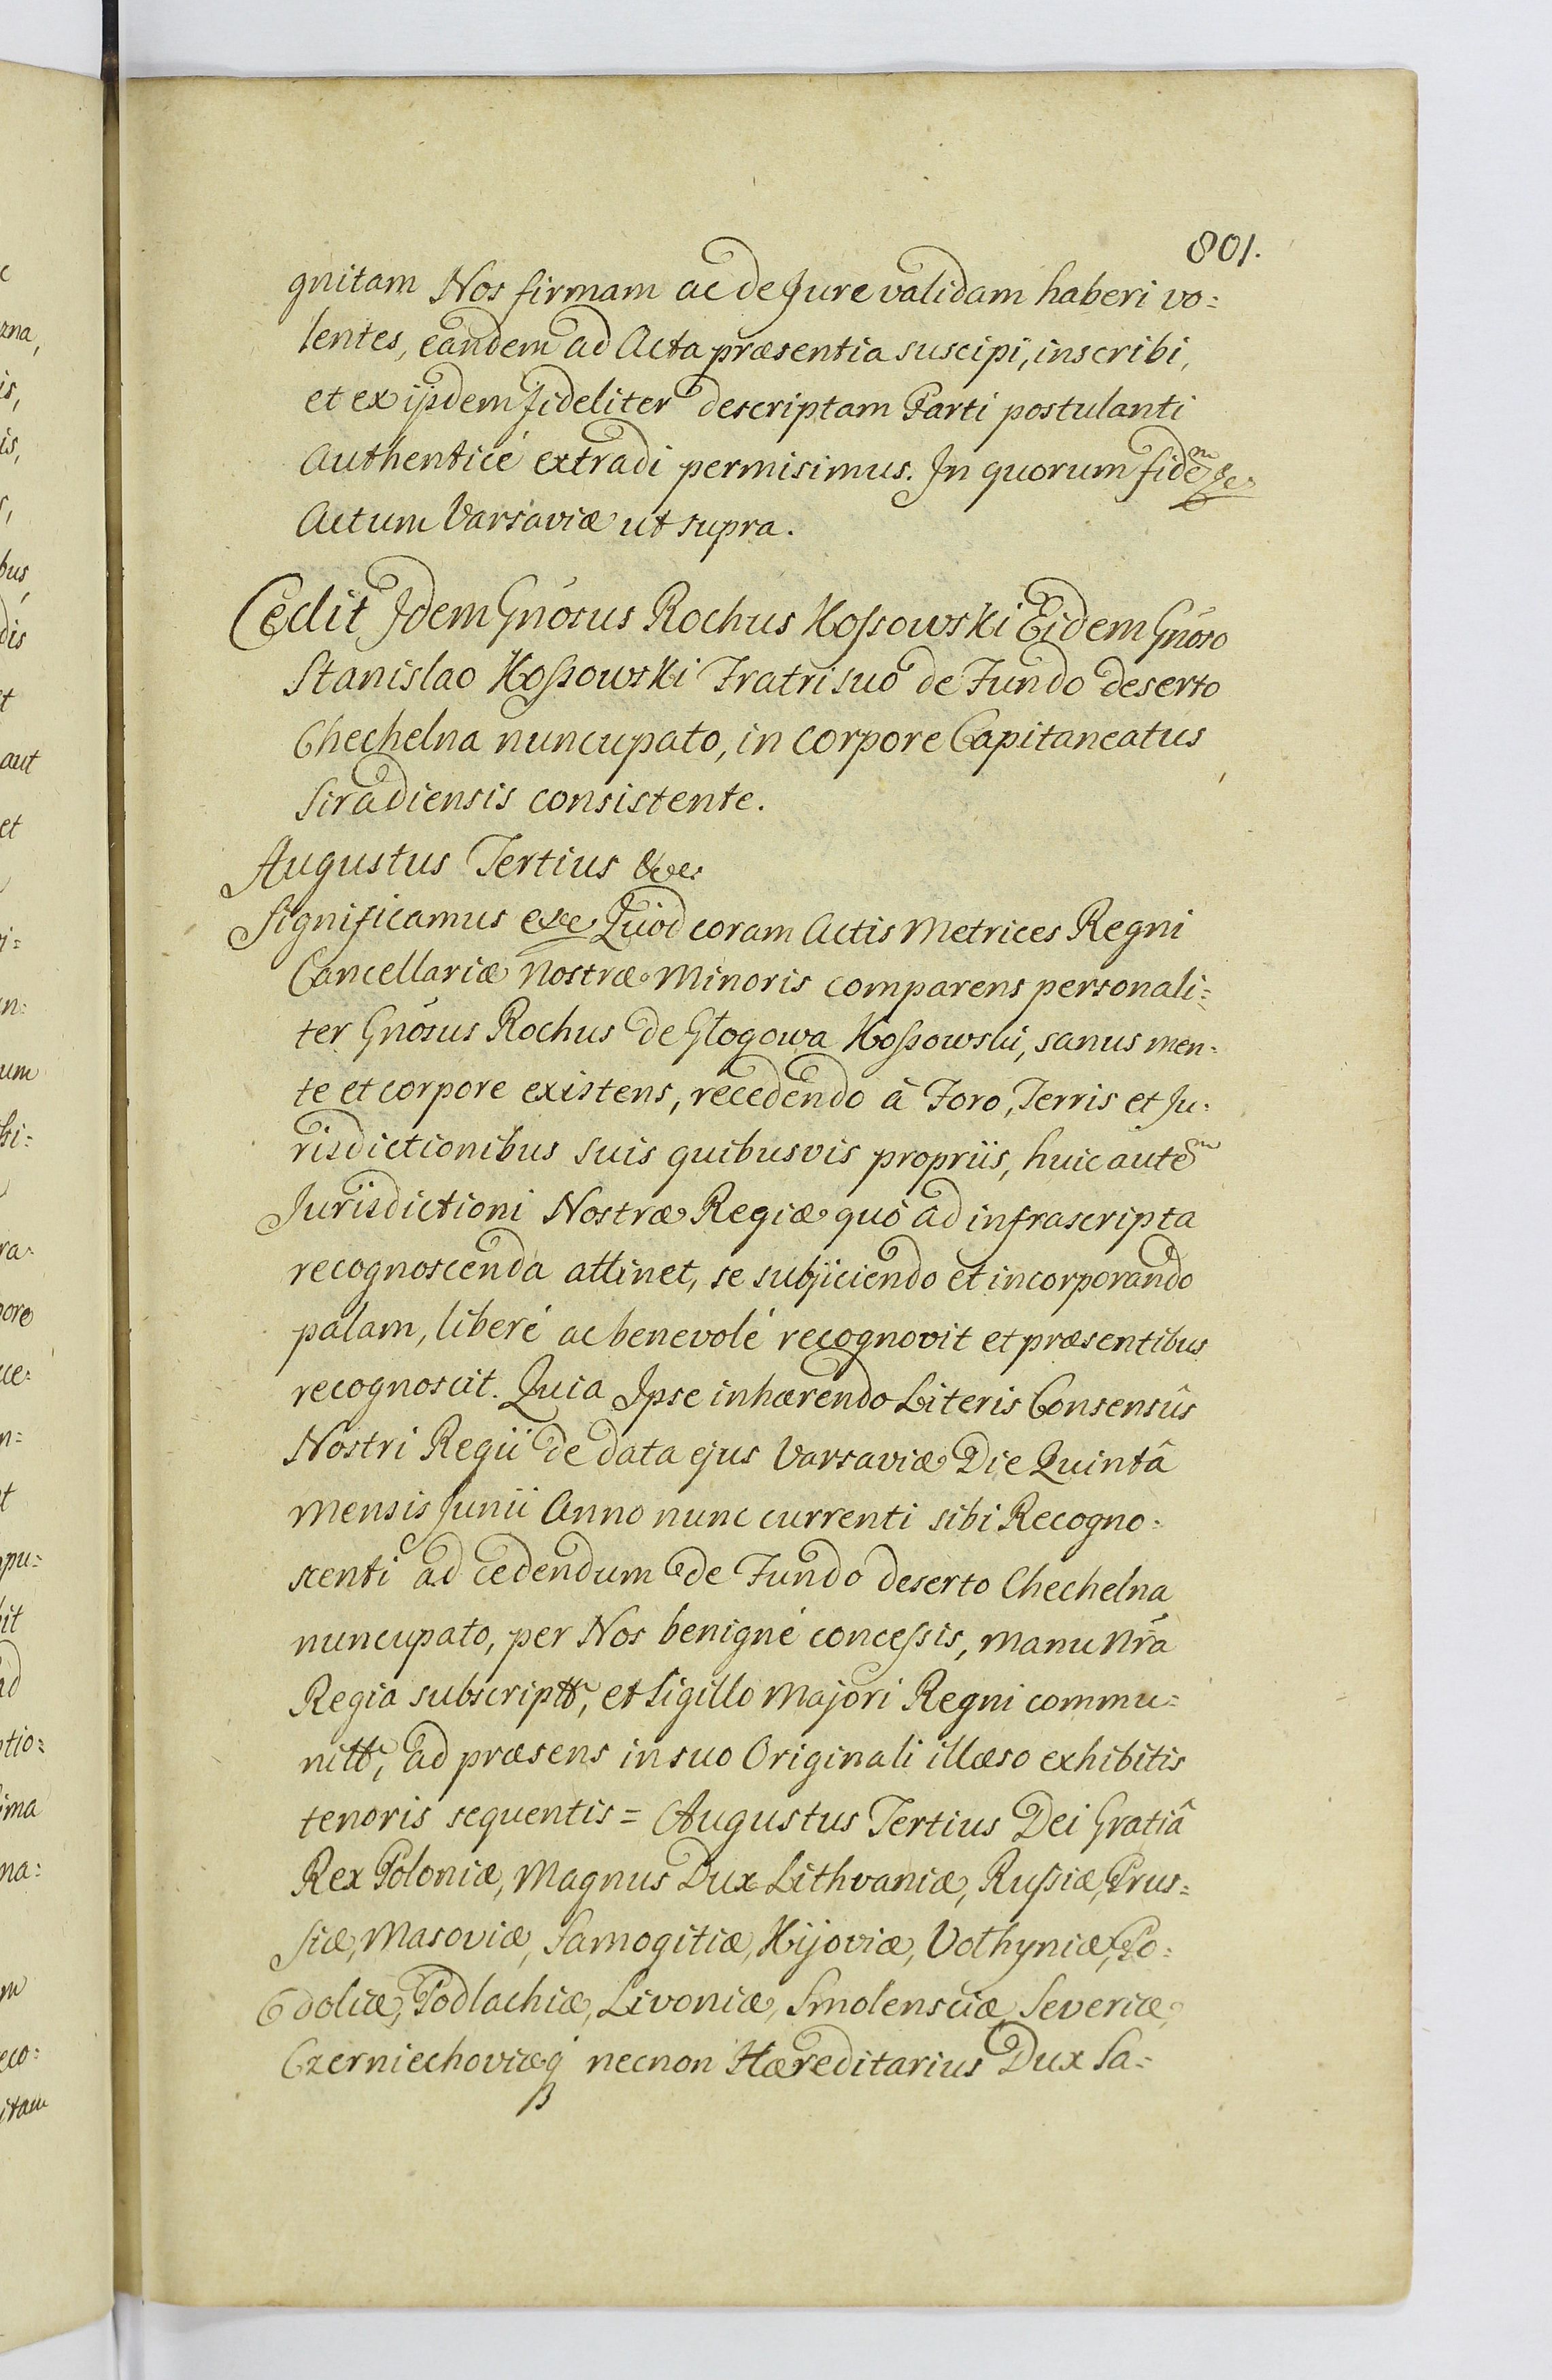 801.
gnitam Nos firmam ac de Jure validam haberi vo=
lentes, eandem ad Acta præsentia suscipi, inscribi,
et ex ijsdem fideliter descriptam Parti postulanti
Authenticè extradi permisimus. In quorum fidem &c.
Actum Varsaviæ ut supra.
Cedit Idem Gnosus Rochus Kossowski Eidem Gnoso
Stanislao Kossowski Fratri suo de Fundo deserto
Chechelna nuncupato, in corpore Capitaneatus
Siradiensis consistente.
Augustus Tertius &c.
Significamus &c. Quod coram Actis Metrices Regni
Cancellariæ Nostræ Minoris comparens personali=
ter Gnosus Rochus de Głogowa Kossowski, sanus men=
te et corpore existens, recedendo à Foro, Terris et Ju=
risdictionibus suis quibusvis propriis, huic autem
Jurisdictioni Nostræ Regiæ quò ad infrascripta
recognoscenda attinet, se subjiciendo et incorporando
palam, liberè ac benevolè recognovit et præsentibus
recognoscit. Quia Ipse inhærendo Literis Consensûs
Nostri Regii de data ejus Varsaviæ Die Quintâ
Mensis Junii Anno nunc currenti sibi Recogno=
scenti ad cedendum de Fundo deserto Chechelna
nuncupato, per Nos benignè concessis, Manu Nra
Regia subscriptt, et Sigillo Majori Regni commu=
nitt, ad præsens in suo Originali illæso exhibitis
tenoris sequentis = Augustus Tertius Dei Gratiâ
Rex Poloniæ, Magnus Dux Lithvaniæ, Russiæ, Prus=
siæ, Masoviæ, Samogitiæ, Kijoviæ, Volhyniæ, Po=
doliæ, Podlachiæ, Livoniæ, Smolensciæ, Severiæ,
Czerniechoviæq necnon Hæreditarius Dux Sa=